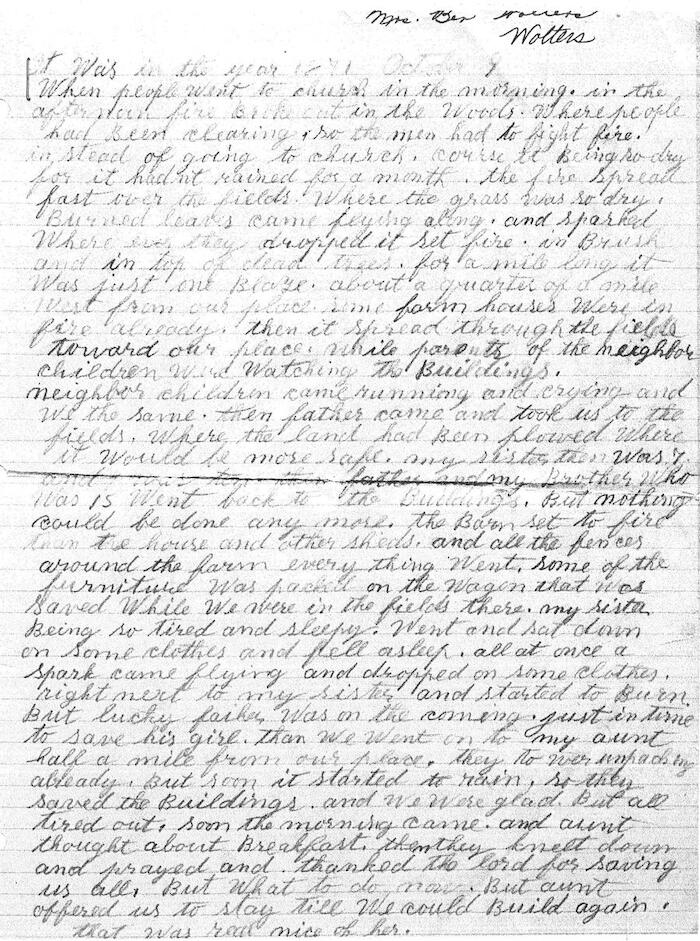 Mrs. Ben Wolters
Wolters
It Was in the year 1871 October 9
When people went to church in the morning. in the
afternoon fire Broke out in the Woods. Where people
had Been clearing, so the men had to fight fire.
in stead of going to church. corse it Being so dry
for it hadnt rained for a month. the fire spread
fast over the fields. Where the grass was so dry.
Burned leaves came flying along. and sparked
Where ever they dropped it set fire. in Brush
and in top of dead trees. for a mile long it
Was just one Blaze. about a quarter of a mile
West from our place some farm houses Were in
fire already. then it spread through the fields
toward our place. While parents of the neighbor
children Were Watching the Buildings.
neighbor children came running and crying and
We the same. then father came and took us to the
fields. Where the land had Been plowed Where
it Would be more safe. my sister then Was 7.
and I was ten then father and my Brother Who
Was 15 Went back to the Buildings. But nothing
could be done any more. the Barn set to fire
than the house and other sheds. and all the fences
around the farm every thing Went. some of the
furniture Was packed on the Wagon that Was
saved While We were in the fields there. my sister
Being so tired and sleepy. Went and sat down
on some clothes and fell asleep. all at once a
spark came flying and dropped on some clothes.
right next to my sister and started to Burn.
But lucky father Was on the coming. just in time
to save his girl. than We Went on to my aunt
half a mile from our place. they to wer unpacking
already. But soon it started to rain. so they
saved the Buildings. and We Were glad. But all
tired out. soon the morning came. and aunt
thought about Breakfast. then they knelt down
and prayed and thanked the lord for saving
us all. But What to do now. But aunt
offered us to stay till We could Build again.
that was real nice of her.